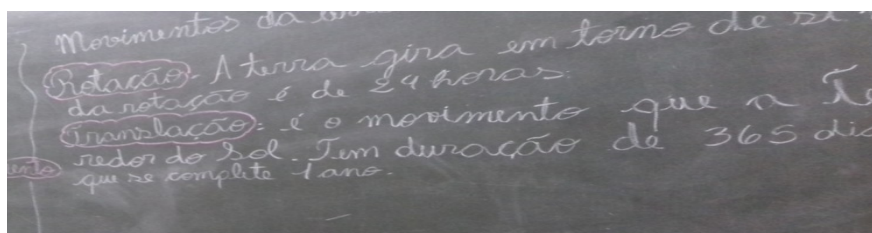 Movimentos da
Rotação. A terra gira em torno de si
da rotação é de 24 horas.
Translação: é o movimento que a Te
redor do Sol. Tem duração de 365 dia
ento que se complete 1 ano.